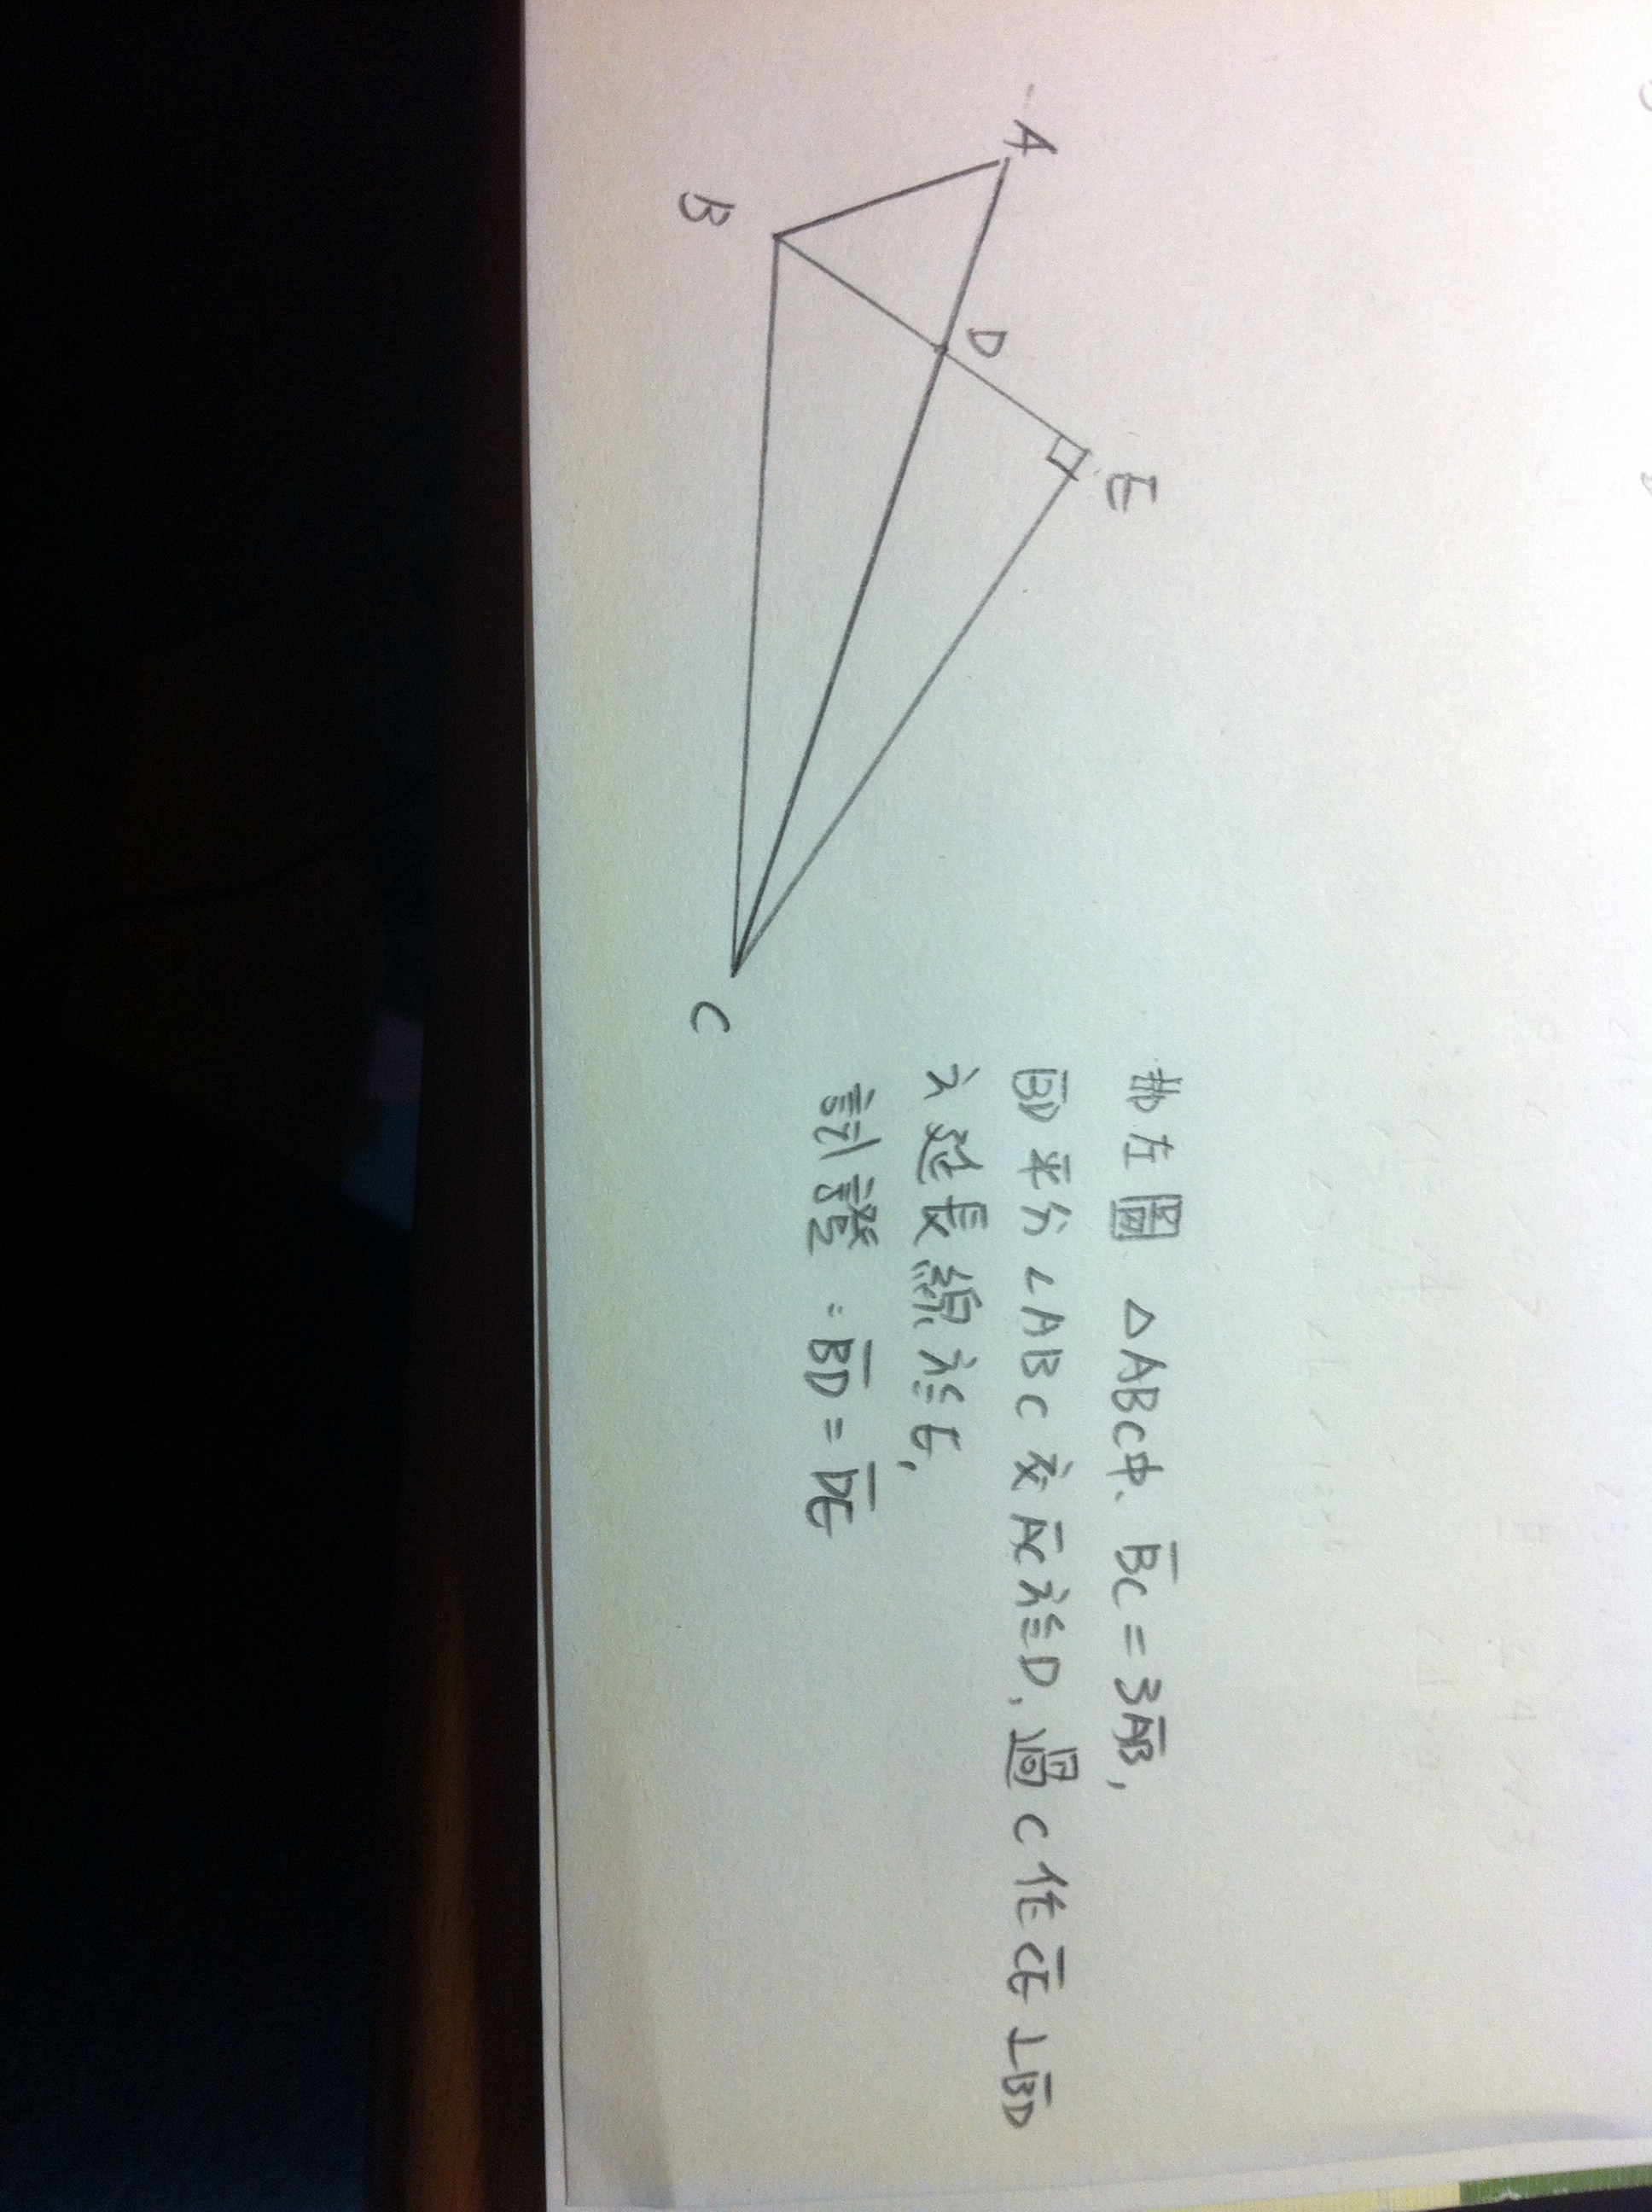 A
B
C
D
E
如左圖 △ABC中, BC = 3AB,
BD 平分 ∠ABC 交 AC 於 D, 過 C 作 CE ⊥ BD
之延長線於 E,
試證 : BD = DE